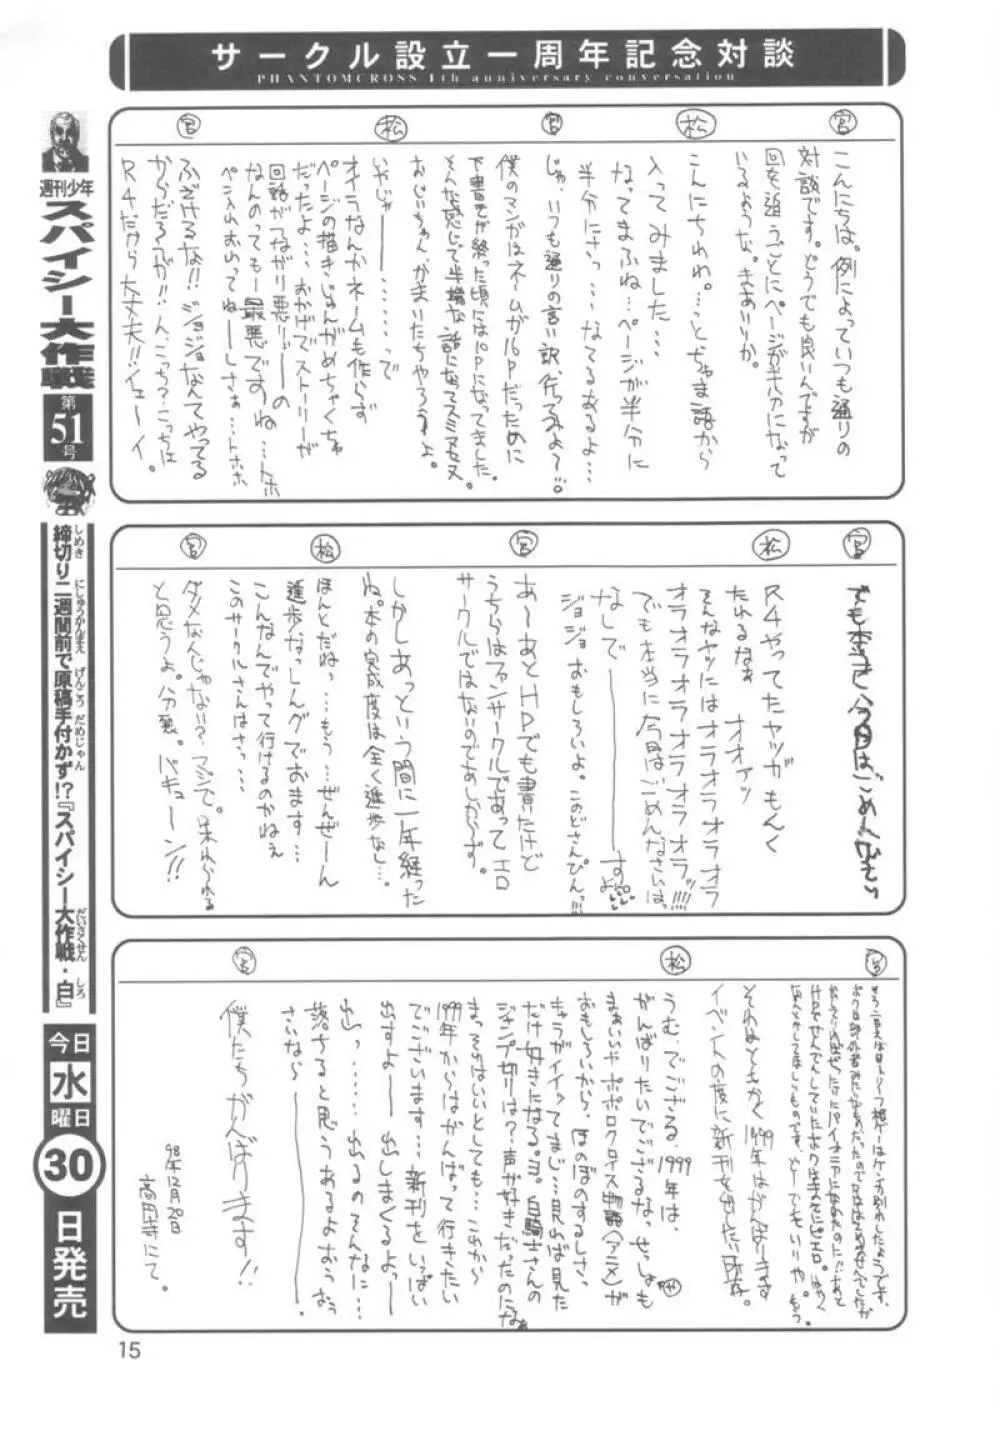 サークル設立一周年記念対談
PHANTOMCROSS 1th anniversary conversation
宮
こんにちは。例によっていつも通りの
対談です。どうでも良いんですが
回を追うごとにページが半分になって
いるような。きのせいか。
松
こんにちわわ。…っと、ちゃま語から
入ってみました…。
なってまふね…ページが半分に
半分にさっ…なてるあるよ…
宮
じゃ、いつも通りの言い訳、行ってみよ〜!!。
僕のマンガはネームが16Pだったために
下書きが終った頃には10Pになってました。
そんな感じで半端な話になってスミマセヌ
おじいちゃん、かまいたちやろうよ。
松
いやじゃ――――で
オイラなんかネームも作らず
ページの描きじゅんがめちゃくちゃ
だったよ…おかげでストーリーが
回話がつながり悪リ―の
なんのっても―最悪ですね…トホ
ペン入れおいてね――しさぁ…トホホ
宮
ふざけるな!!ジョジョなんてやってる
からだろうが!!んこっち?こっちは
R4だから大丈夫!!イェーイ。
宮
でも本当に今回はごめんなさい
松
R4やってたヤツがもんく
たれるなぁ オオァッ
そんなヤツにはオラオラオラオラ
オラオラオラオラオラオラオラッ!!!!
でも本当に今回はごめんなさいは、
なしで――――すよ
ジョジョおもしろいよ。このどさんぴんっ!!!
宮
あ〜あとHPでも書いたけど
うちらはファンサークルであってエロ
サークルではないのであしからず。
しかしあっという間に一年経った
ね。本の完成度は全く進歩なし…
松
ほんとだねっ…もうっ…ぜんぜーん
進歩なっしんグでおます…
こんなんでやって行けるのかねぇ
このサークルさんはさっ…
宮
ダメなんじゃない?マジで。呆れられる
と思うよ。分裂。バキューン!!
宮
それはともかく1999年はがんばります
イベントの度に新刊を出したい所存。
松
うむ。でござる。1999年は、
がんばりたいでござるなっせっしょも
まぁいいドポポロクロイス物語(アニメ)が
おもしろいから、ほのぼのするしさ、
キャラがイイッてまじ…見れば見た
だけ好きになる。ヨ。白騎士さんの
ジャンプ切りは?声が好きだったのになぁ
まっそれはいいとしても…これから
1999年からはがんばって行きたい
でございます…新刊をいっぱい
出すよ――出しまくるよっ――
出っ……出るのそんなに…
落ちると思うあるよおぅおぅ
さいなら〜―――――。
宮
僕たちがんばります!!
98年12月20日
高円寺にて。
週刊少年
スパイシー大作戦
第
51
号
締切り二週間前で原稿手付かず!?『スパイシー大作戦・白』
しめき にしゅうかんまえ げんこう だめじゃん だいさくせん しろ
今日
水
曜日
30
日発売
15